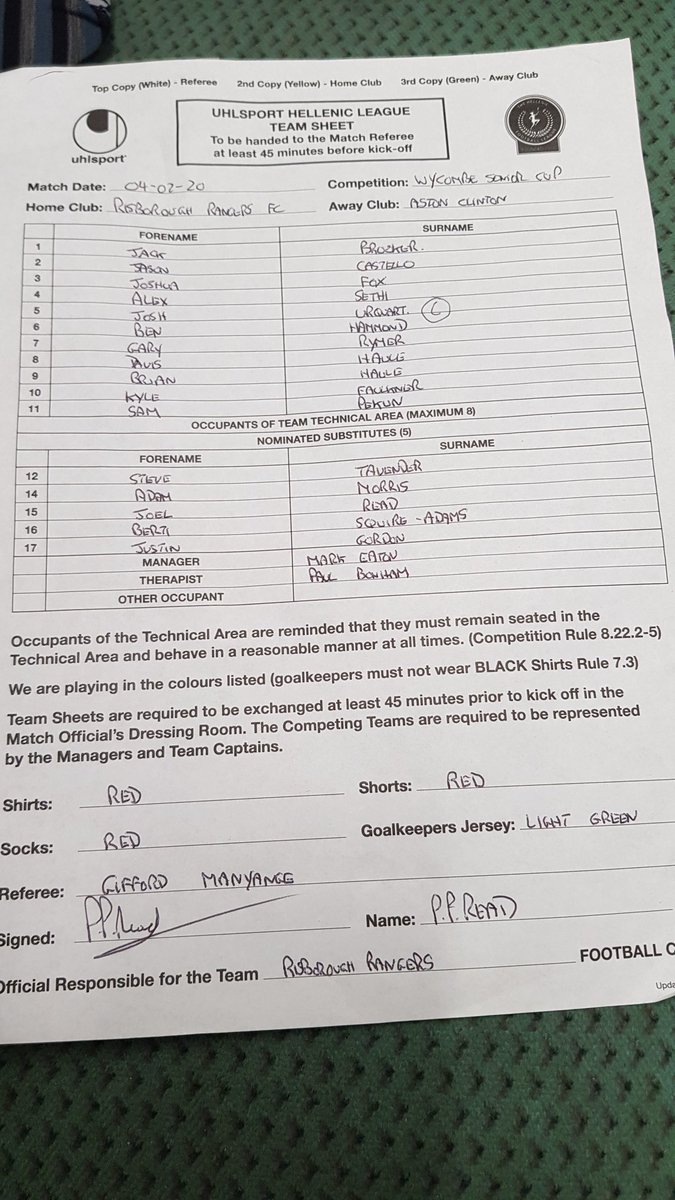 Top Copy (White) - Referee 2nd Copy (Yellow) - Home Club 3rd Copy (Green) - Away Club
uhlsport
UHLSPORT HELLENIC LEAGUE
TEAM SHEET
To be handed to the Match Referee
at least 45 minutes before kick-off
Match Date: 04-02-20 Competition: WYCOMBE SENIOR CUP
Home Club: RISBOROUGH RANGERS FC Away Club: ASTON CLINTON
FORENAME SURNAME
1 JACK BROZKER.
2 JASON CASTELLO
3 JOSHUA FOX
4 ALEX SETHI
5 JOSH URQUART. C
6 BEN HAMMOND
7 GARY RYMER
8 HAULE
9 BRIAN HAULE
10 KYLE FAULKNER
11 SAM
OCCUPANTS OF TEAM TECHNICAL AREA (MAXIMUM 8)
NOMINATED SUBSTITUTES (5)
FORENAME SURNAME
12 STEVE TAVENDER
14 ADAM MORRIS
15 JOEL READ
16 BERTI SQUIRE-ADAMS
17 JUSTIN GORDON
MANAGER MARK EATON
THERAPIST PAUL BONHAM
OTHER OCCUPANT
Occupants of the Technical Area are reminded that they must remain seated in the
Technical Area and behave in a reasonable manner at all times. (Competition Rule 8.22.2-5)
We are playing in the colours listed (goalkeepers must not wear BLACK Shirts Rule 7.3)
Team Sheets are required to be exchanged at least 45 minutes prior to kick off in the
Match Official's Dressing Room. The Competing Teams are required to be represented
by the Managers and Team Captains.
Shirts: RED Shorts: RED
Socks: RED Goalkeepers Jersey: LIGHT GREEN
Referee: GIFFORD MANYANGE
Signed: P.P. Read Name: P.P. READ
Official Responsible for the Team RISBOROUGH RANGERS FOOTBALL C
Upda